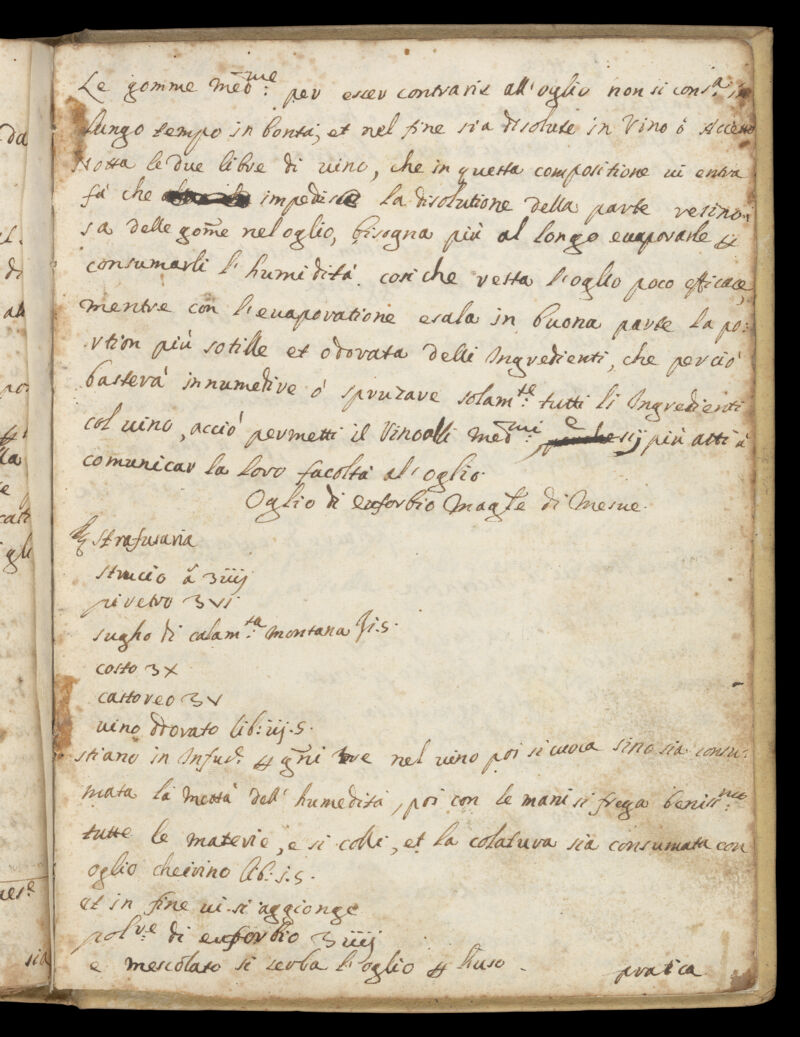 Le gomme med:me per esser contrarie all'oglio non si cons:a
lungo tempo in bontà, et nel fine sia disolute in Vino ó Acceto
Notta le due libre di vino, che in questa compositione ui entra
fá che impedisce la disolutione della parte resino:
sa delle gom̃e nel oglio, bisogna piú al longo euaporarle ꝑ
consumarli l'humiditá. cosi che resta l'oglio poco efficace,
mentre con l'euaporatione esala in buona parte la po:
rtion piú sotille et odorata delli Ingredienti, che perció
basterá innumedire ó spruzare solam:te tutti li Ingredienti
col uino, acció permetti il Vino alli med:mi e piú atti á
comunicar la loro facoltá al'oglio.
Oglio di euforbio Mag:re di Mesue.
℞ strafusaria
strucio ā ʒ iiij
piretro ʒ vi
sugho di calam:ta montana ℥i.s.
costo ʒ x
castoreo ʒ v
uino odorato lib: iij.s.
stiano in Infus: ꝑ g̃ni tre nel uino poi si cuoca sino sia consu:
mata la mettá dell'humeditá, poi con le mani si frega beniss:mo
tutte le materie, e si colli, et la colatura sia consumata con
oglio cheirino lib: i.s.
et in fine ui si aggionge
pol:re di euforbio ʒ iiij
e mescolato si serba l'oglio ꝑ l'uso.
pratica